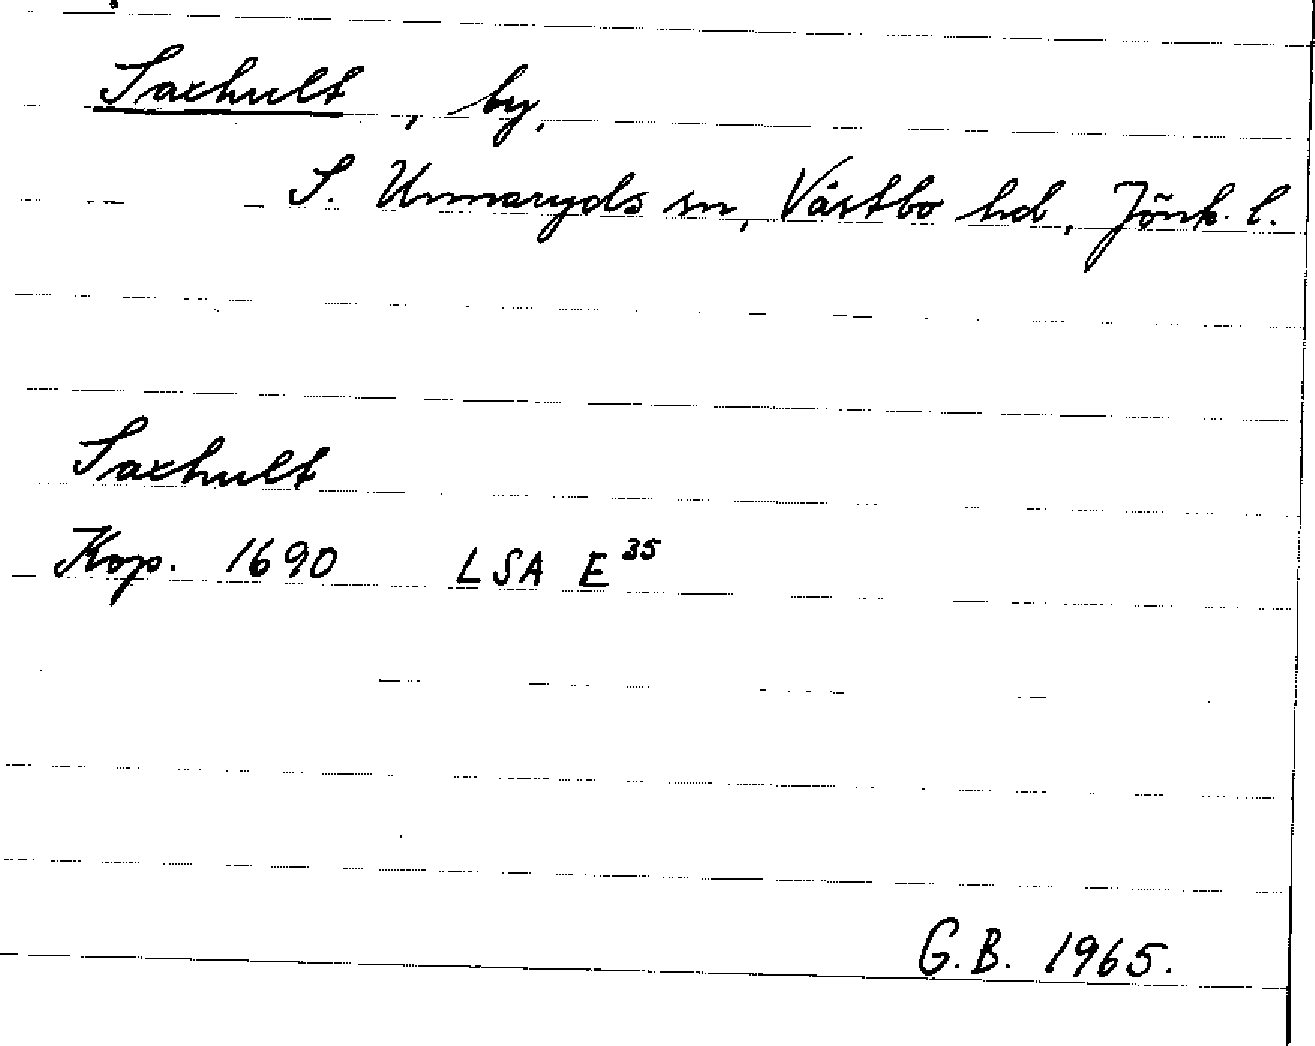 Saxhult, by,
S. Unnaryds sn, Västbo hd, Jönk. l.
Saxhult
Kop. 1690 LSA E 35
G.B. 1965.